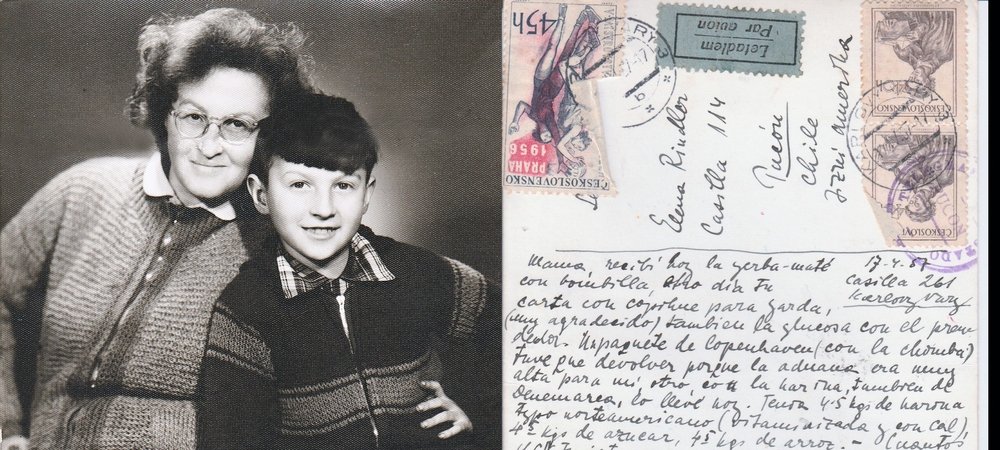 45h
PRAHA
1956
ČESKOSLOVENSKO
Letadlem
Par avion
KARLOVY VARY 3
ČESKOSLOVENSKO
ČESKOSLOV
Elena Rindler
Casilla 114
Pucón
Chile
Jižní Amerika
17-4.57
Casilla 261
Karlovy Vary
Mama, recibí hoy la yerba-maté
con bombilla, otro día tu
carta con copihue para Garda,
(muy agradecido) tambien la glucosa con el pren
dedor. Un paquete de Copenhaven (con la chomba)
tuve que devolver porque la aduana era muy
alta para mi, otro, con la harina, tambien de
Denemarca, lo llevé hoy. Tenia 4.5 kgs de harina
typo norteamericano (vitaminizada y con cal),
4½ kgs de azucar, 4½ kgs de arroz. - Cuantos